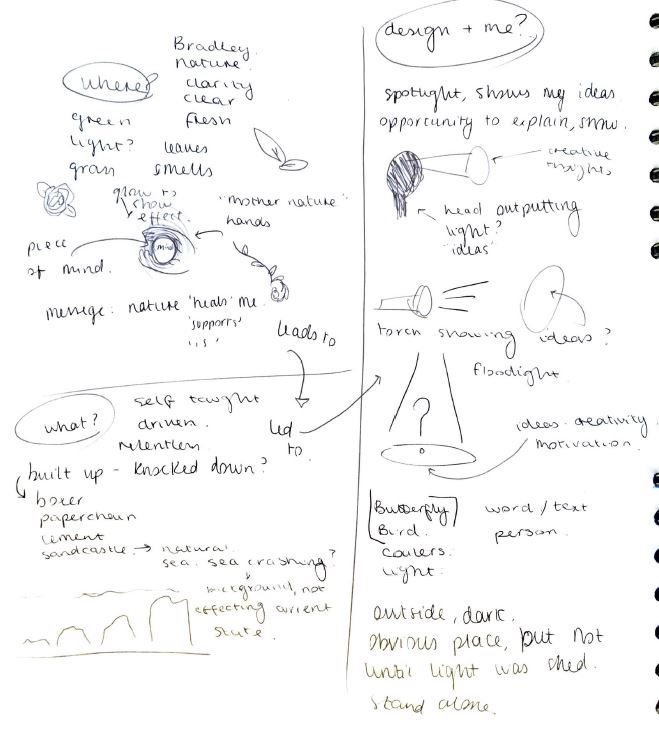 where?
Bradley.
nature.
clarity
clear
green fresh
light? leaves
grass smells
glow to
show
effect.
"mother nature"
hands
piece
of mind.
mind
message: nature 'heals' me.
'supports'
leads to
what?
self taught
driven.
relentless
led
to.
built up - knocked down?
boxer
paperchain
cement
sandcastle → natural.
sea. sea crashing?
background, not
effecting current
state.
design + me?
spotlight, shows my ideas.
opportunity to explain, show.
creative
thoughts
head outputting
light?
'ideas'
torch showing ideas?
floodlight.
?
ideas. creativity.
motivation.
Butterfly word / text
Bird. person.
Light.
outside, dark.
obvious place, but not
until light was shed.
stand alone.